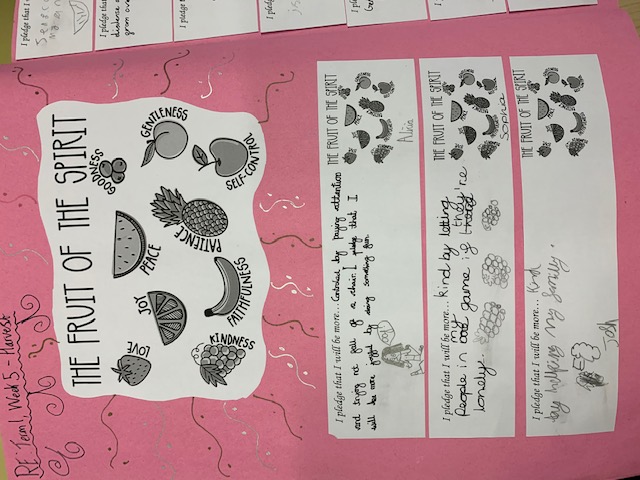 RE Term 1 Week 5 - Harvest
THE FRUIT OF THE SPIRIT
LOVE
JOY
PEACE
GOODNESS
GENTLENESS
KINDNESS
FAITHFULNESS
PATIENCE
SELF-CONTROL
I pledge that I
I pledge that I
distance
I pledge that I
I pledge that I
I pledge that I
THE FRUIT OF THE SPIRIT
I pledge that I will be more... Controled by paying attention
and trying not fall of a chair. I pledge that I
will be more joyful by doing something fun
Alicia
THE FRUIT OF THE SPIRIT
I pledge that I will be more... kind by letting
people in my game if they're
lonely.
Sophia
THE FRUIT OF THE SPIRIT
I pledge that I will be more... kind
by helping my family.
Josh